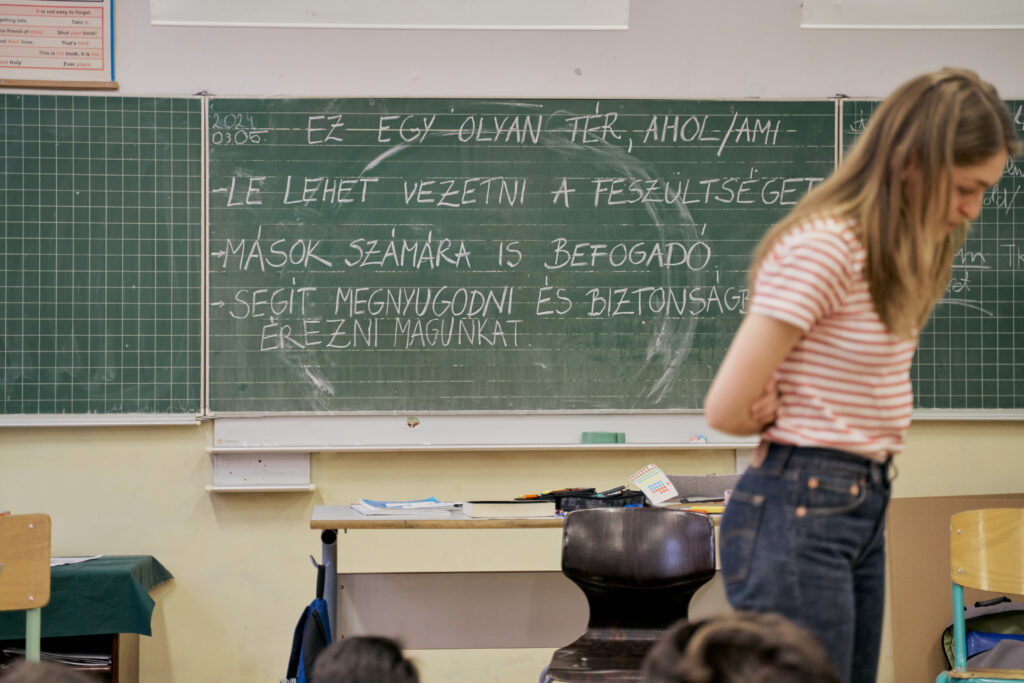 It is not easy to forget.
getting late. Take it.
no friend of mine. Shut your book!
their lives. That's
This is book, it is
truly Ever yours
2024 03 06.
EZ EGY OLYAN TÉR, AHOL/AMI
→ LE LEHET VEZETNI A FESZÜLTSÉGET
→ MÁSOK SZÁMÁRA IS BEFOGADÓ.
→ SEGÍT MEGNYUGODNI ÉS BIZTONSÁGB
ÉREZNI MAGUNKAT.